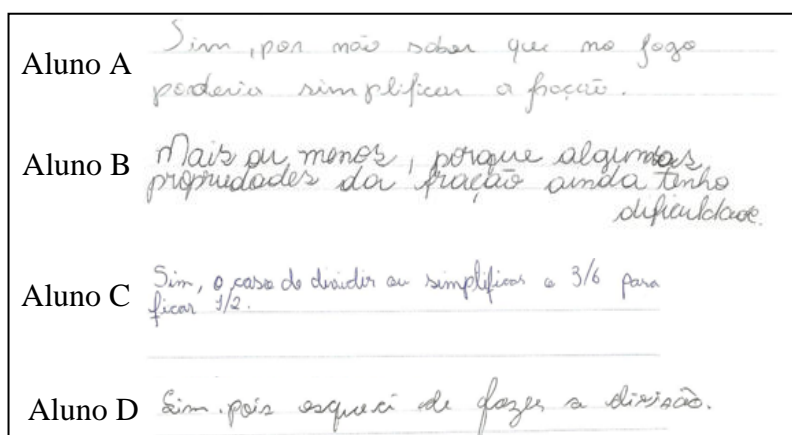 Aluno A Sim, por não saber que no jogo
poderia simplificar a fração.
Aluno B Mais ou menos, porque algumas
propriedades da fração ainda tenho
dificuldade.
Aluno C Sim, o caso de dividir ou simplificar o 3/6 para
ficar 1/2.
Aluno D Sim. pois esqueci de fazer a divisão.